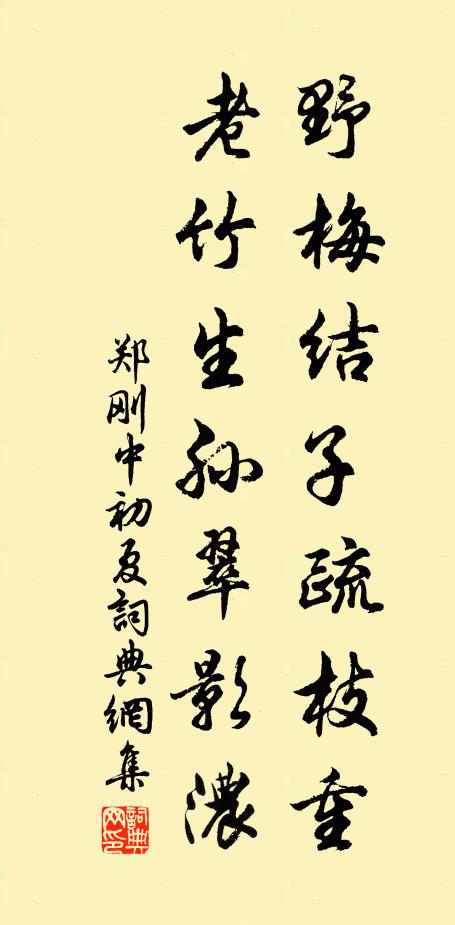 野梅结子疏枝重
老竹生孙翠影浓
郑刚中初夏詞典網集
詞典网印